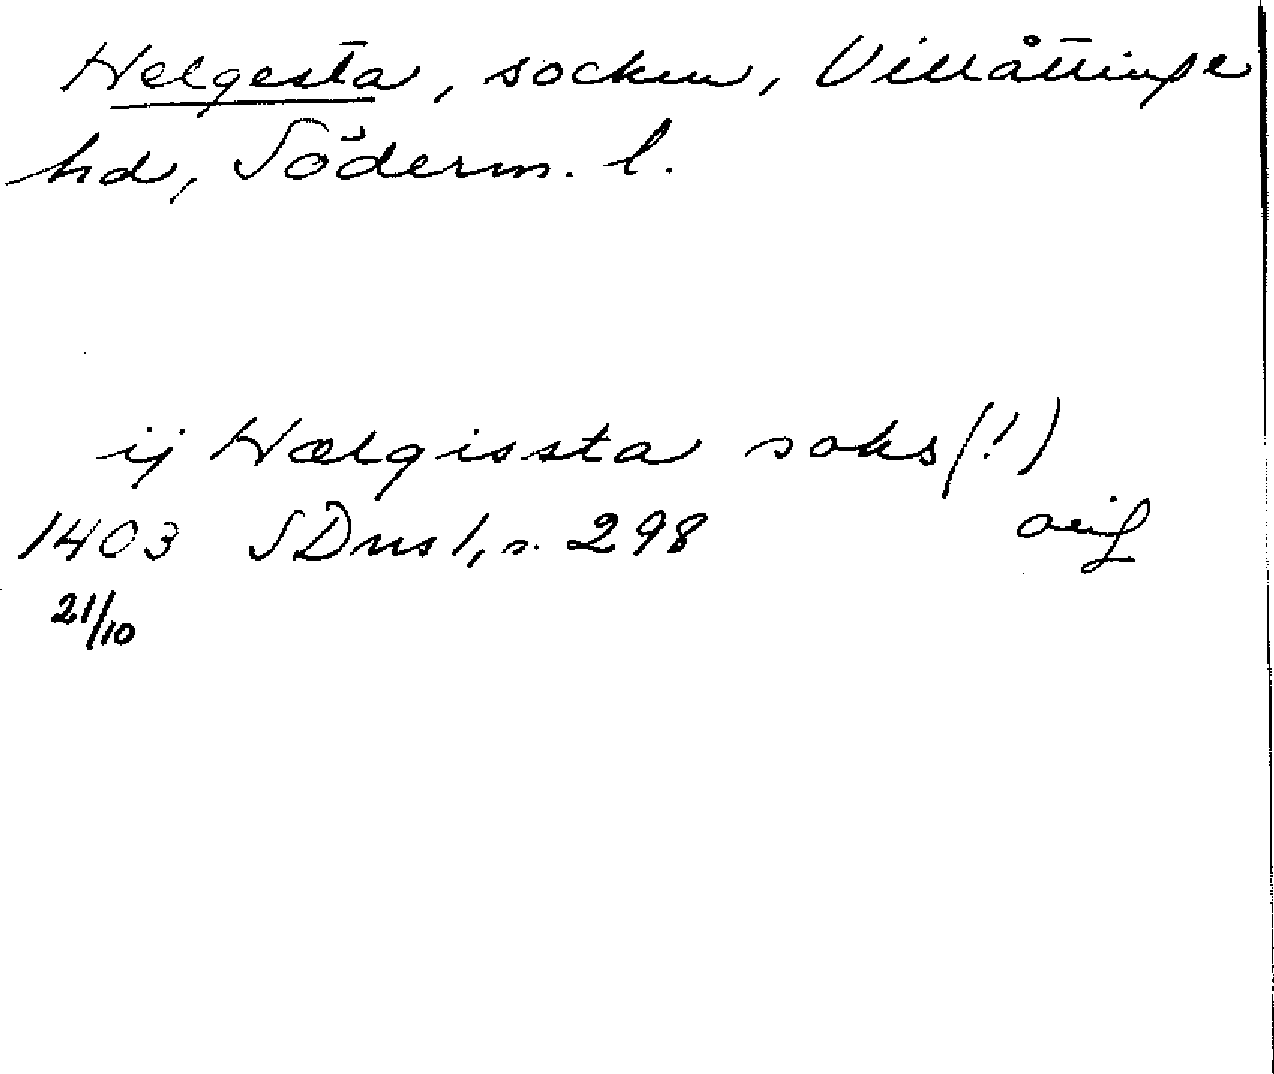 Helgesta, socken, Villåttinge
hd, Söderm. l.
ij Hælgissta soks (!)
1403 SDns 1, s. 298 orig
21/10